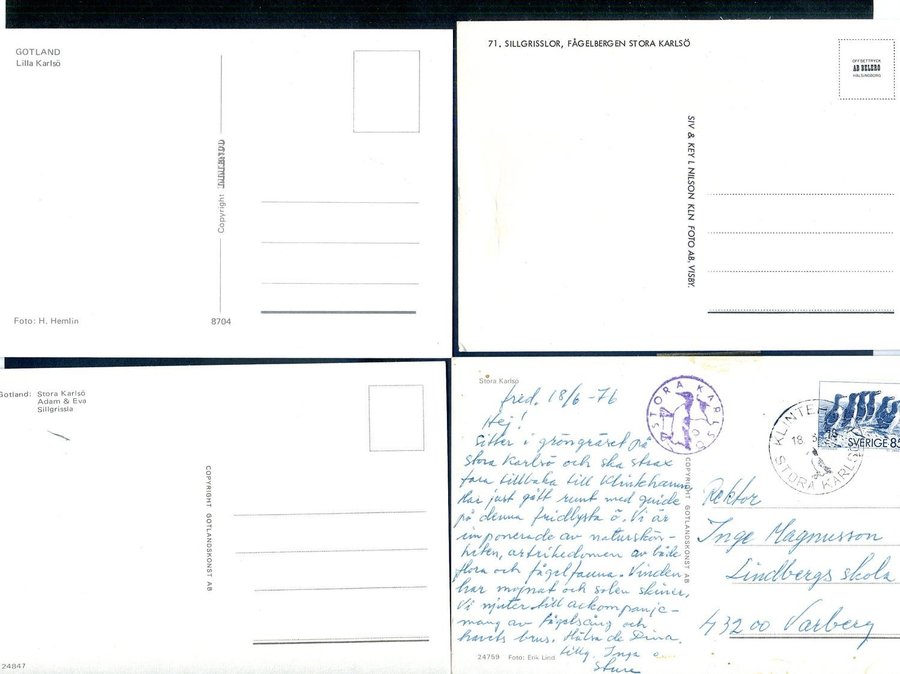 GOTLAND
Lilla Karlsö
Copyright
Foto: H. Hemlin
8704
71. SILLGRISSLOR, FÅGELBERGEN STORA KARLSÖ
OFFSETTRYCK
AB BELERO
HÄLSINGBORG
SIV & KEY L NILSON KLN FOTO AB, VISBY.
Gotland: Stora Karlsö
Adam & Eva
Sillgrissla
COPYRIGHT GOTLANDSKONST AB
24847
Stora Karlsö
fred. 18/6 -76
Hej!
Sitter i gröngräset på
Stora Karlsö och ska strax
fara tillbaka till Klintehamn
Har just gått runt med guide
på denna fridlysta ö. Vi är
imponerade av naturskön-
heten, artrikedomen av både
flora och fågelfauna. Vinden
har mojnat och solen skiner.
Vi njuter till ackompanje-
mang av fågelsång och
havets brus. Hälsa de Dina.
Inga o
Sture
24759 Foto: Erik Lind
COPYRIGHT GOTLANDSKONST AB
STORA KARLSÖ
KLINTEHAMN
18
STORA KARLSÖ
SVERIGE 85
Rektor
Inge Magnusson
Lindbergs skola
432 00 Varberg